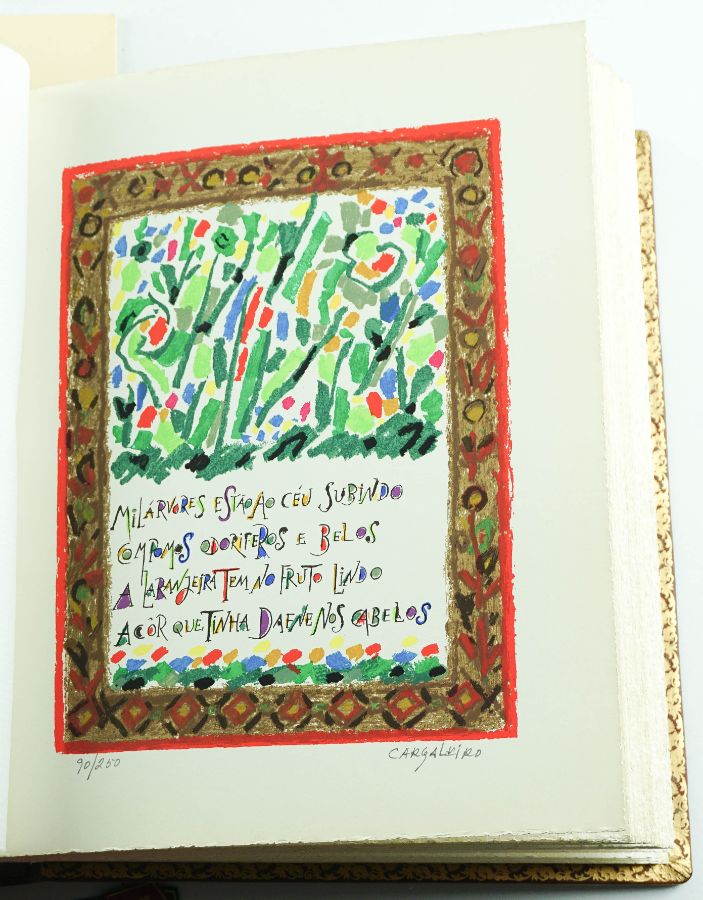 MIL ÁRVORES ESTÃO AO CÉU SUBINDO
COM POMOS ODORIFEROS E BELOS
A LARANJEIRA TEM NO FRUTO LINDO
A CÔR QUE TINHA DAFNE NOS CABELOS
90/250
CARGALEIRO